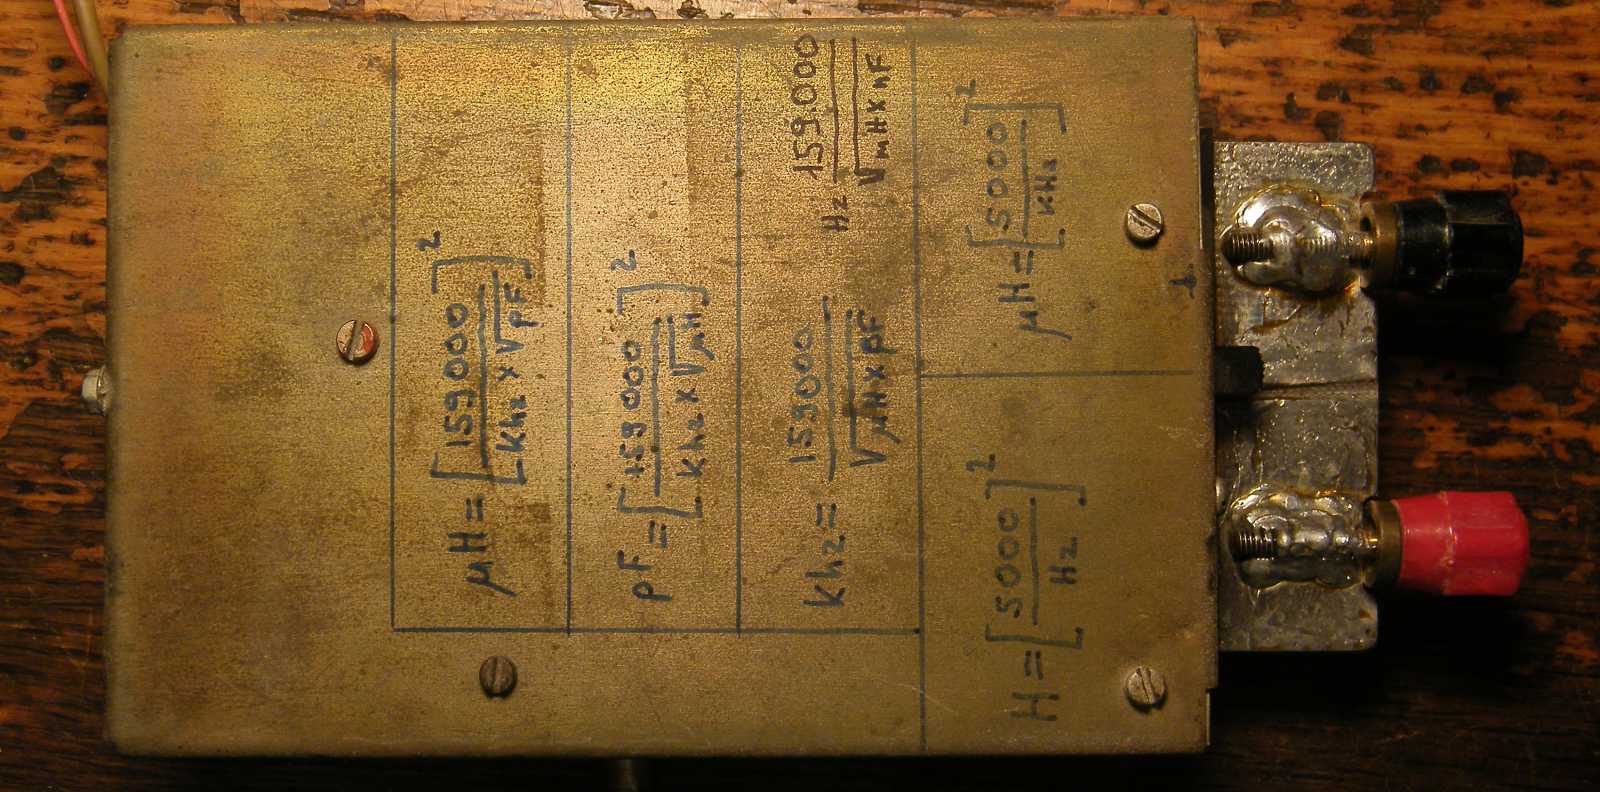 µH = [159000 / Khz x √pF]²
pF = [159000 / Khz x √µH]²
Khz = 159000 / √µHxpF
Hz 159.000 / √mHxnF
H = [5000 / Hz]²
µH = [5000 / KHz]²